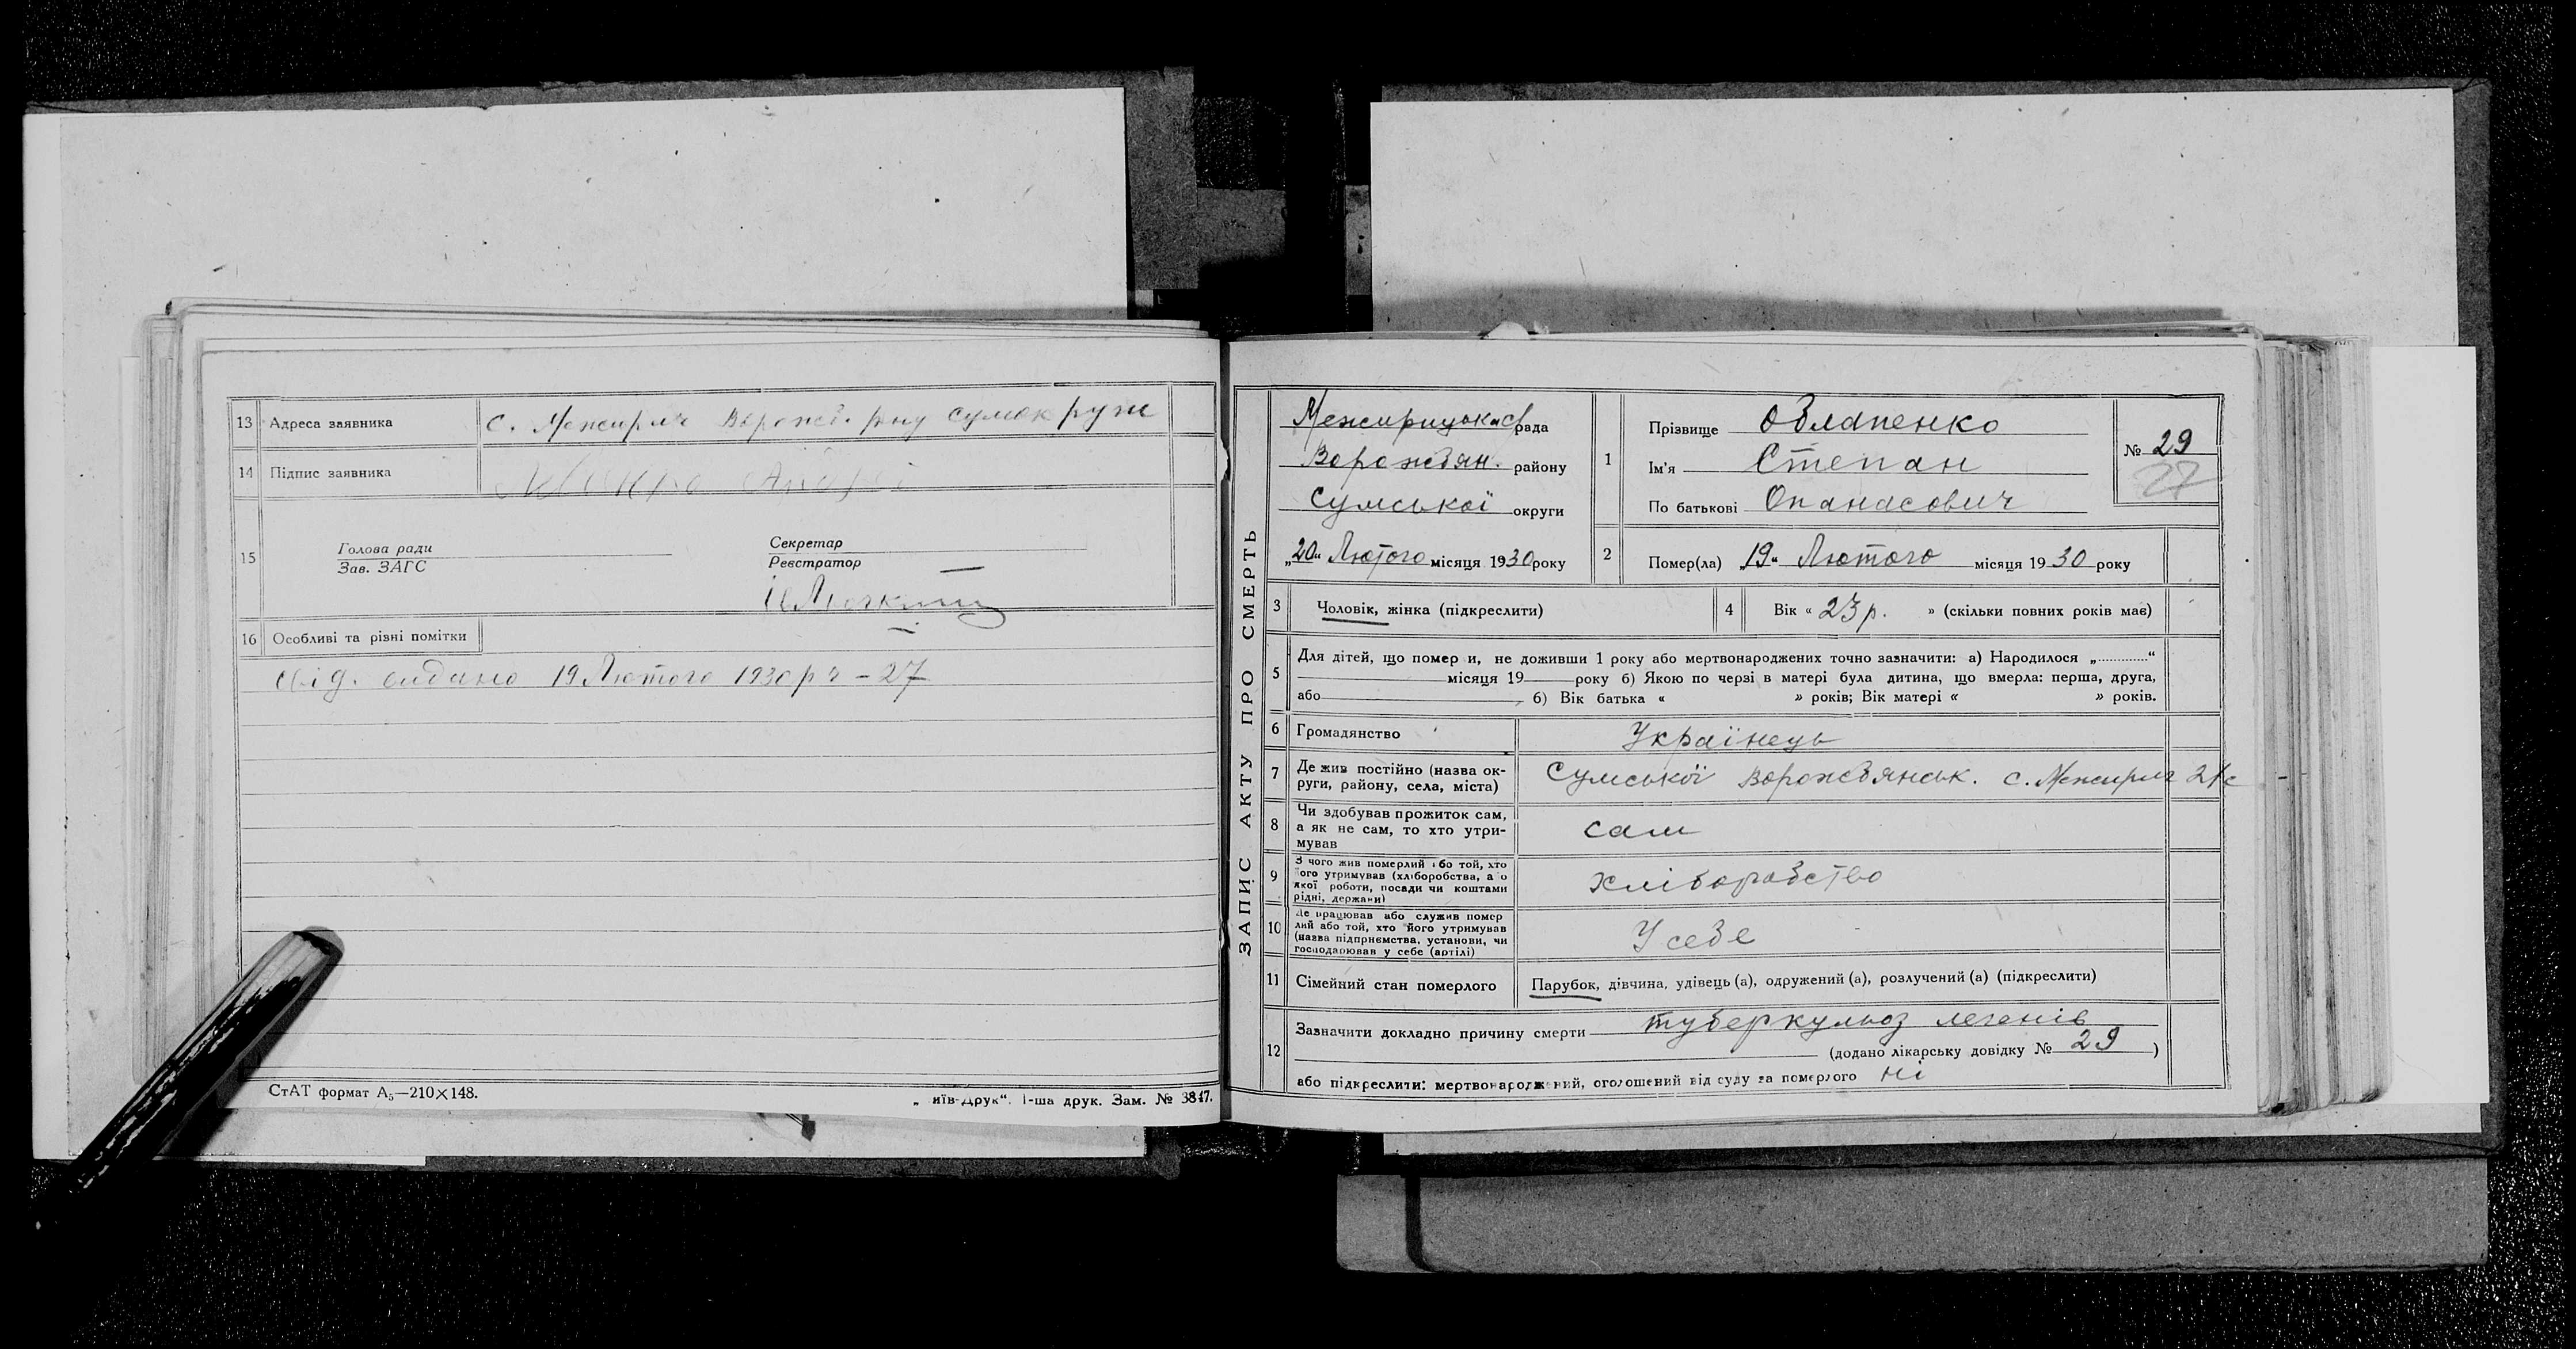 13 Адреса заявника с. Межирич Ворожб. рну сумок руги
14 Підпис заявника Андрій
15 Голова ради
Зав. ЗАГС
Секретар
Реєстратор
16 Особливі та різні помітки
Свід. видано 19 Лютого 1930 р ч - 27
СтАТ формат А₅—210×148.
„ иїв-Друк“. І-ша друк. Зам. № 3847.
ЗАПИС АКТУ ПРО СМЕРТЬ
Межирицька с рада
Ворожбян. району
Сумської округи
„20“ Лютого місяця 1930 року
1 Прізвище Облапенко
Ім'я Степан
По батькові Опанасович
№ 29
27
2 Помер(ла) „19“ Лютого місяця 1930 року
3 Чоловік, жінка (підкреслити)
4 Вік « 23 р. » (скільки повних років має)
5 Для дітей, що помер и, не доживши 1 року або мертвонароджених точно зазначити: а) Народилося „............“
місяця 19 року б) Якою по черзі в матері була дитина, що вмерла: перша, друга,
або , б) Вік батька « » років; Вік матері « » років.
6 Громадянство Українець
7 Де жив постійно (назва ок-
руги, району, села, міста) Сумської Ворожбянськ. с. Межирич
8 Чи здобував прожиток сам,
а як не сам, то хто утри-
мував сам
9 З чого жив померлий або той, хто
його утримував (хліборобства, або
якої роботи, посади чи коштами
рідні, держави) хліборобство
10 Де працював або служив помер
лий або той, хто його утримував
(назва підприємства, установи, чи
господарював у себе (артілі) У себе
11 Сімейний стан померлого Парубок, дівчина, удівець (а), одружений (а), розлучений (а) (підкреслити)
12 Зазначити докладно причину смерти туберкульоз легенів
(додано лікарську довідку № 29 )
або підкреслити: мертвонароджений, оголошений від суду за померлого ні